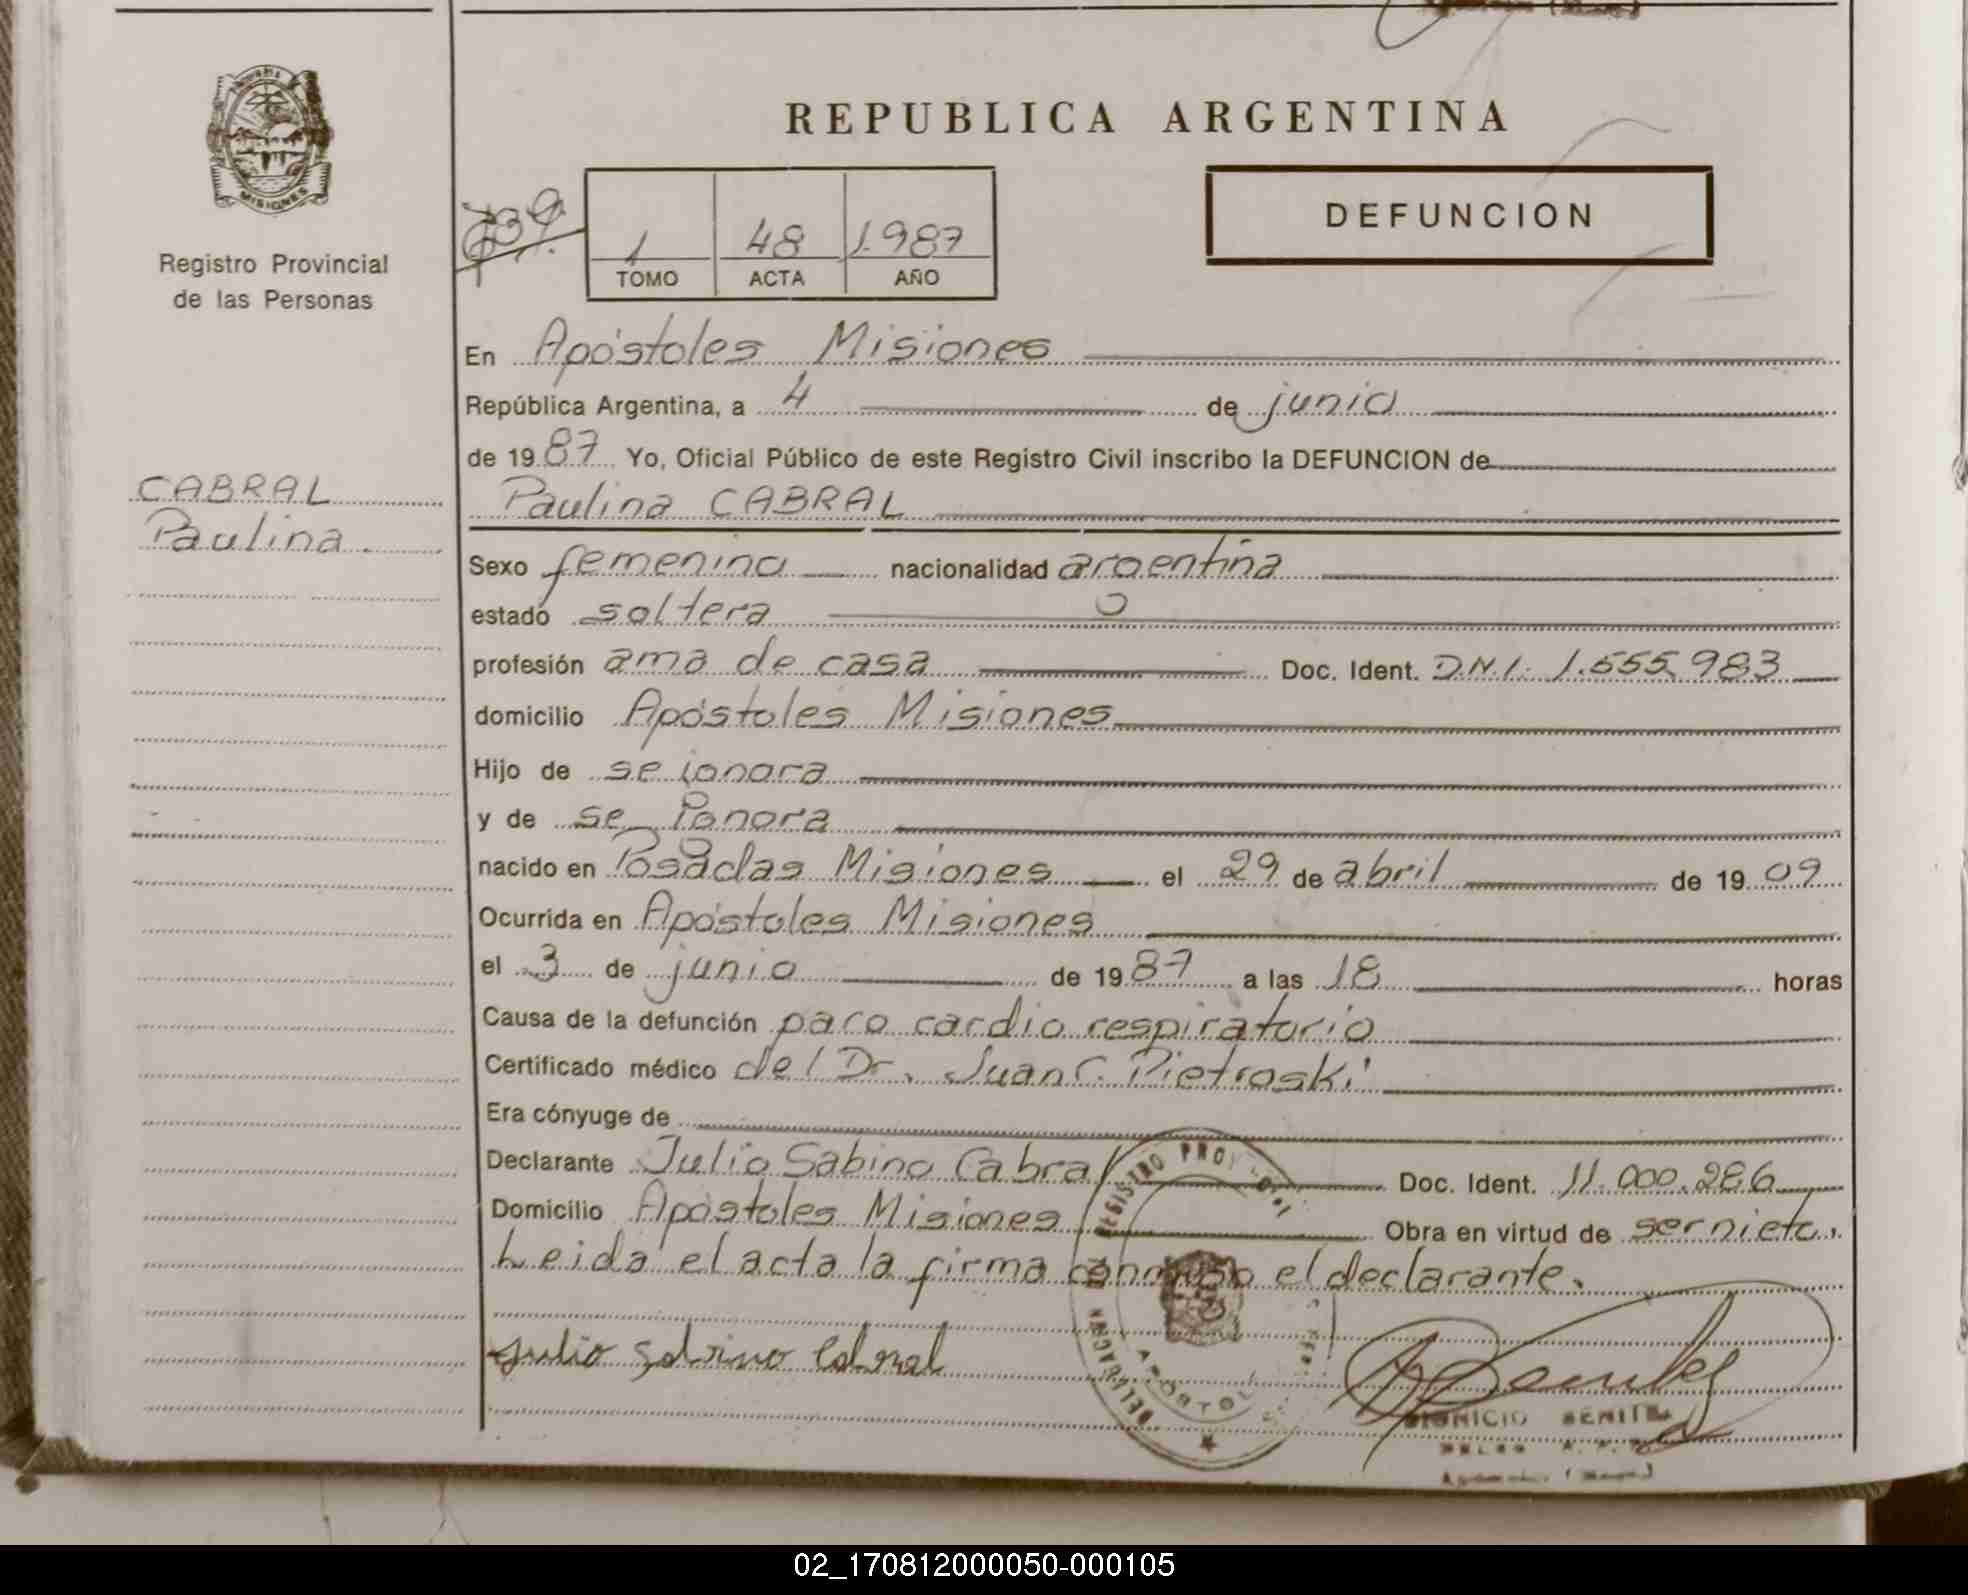 REPUBLICA ARGENTINA
MISIONES
Registro Provincial
de las Personas
DEFUNCION
1 48 1.987
TOMO ACTA AÑO
En Apóstoles Misiones
República Argentina, a 4 de junio
de 19 87 Yo, Oficial Público de este Registro Civil inscribo la DEFUNCION de
CABRAL
Paulina.
Paulina CABRAL
Sexo femenino nacionalidad argentina
estado soltera
profesión ama de casa Doc. Ident. D.N.I. 1.555.983
domicilio Apóstoles Misiones
Hijo de se ignora
y de se ignora
nacido en Posadas Misiones el 29 de abril de 19 09
Ocurrida en Apóstoles Misiones
el 3 de junio de 19 87 a las 18 horas
Causa de la defunción paro cardio respiratorio
Certificado médico del Dr. Juan C. Pietroski
Era cónyuge de
Declarante Julio Sabino Cabral Doc. Ident. 11.000.286
Domicilio Apóstoles Misiones Obra en virtud de ser nieto.
Leida el acta la firma conmigo el declarante.
Julio Sabino Cabral
DELEGACION REGISTRO
02_170812000050-000105